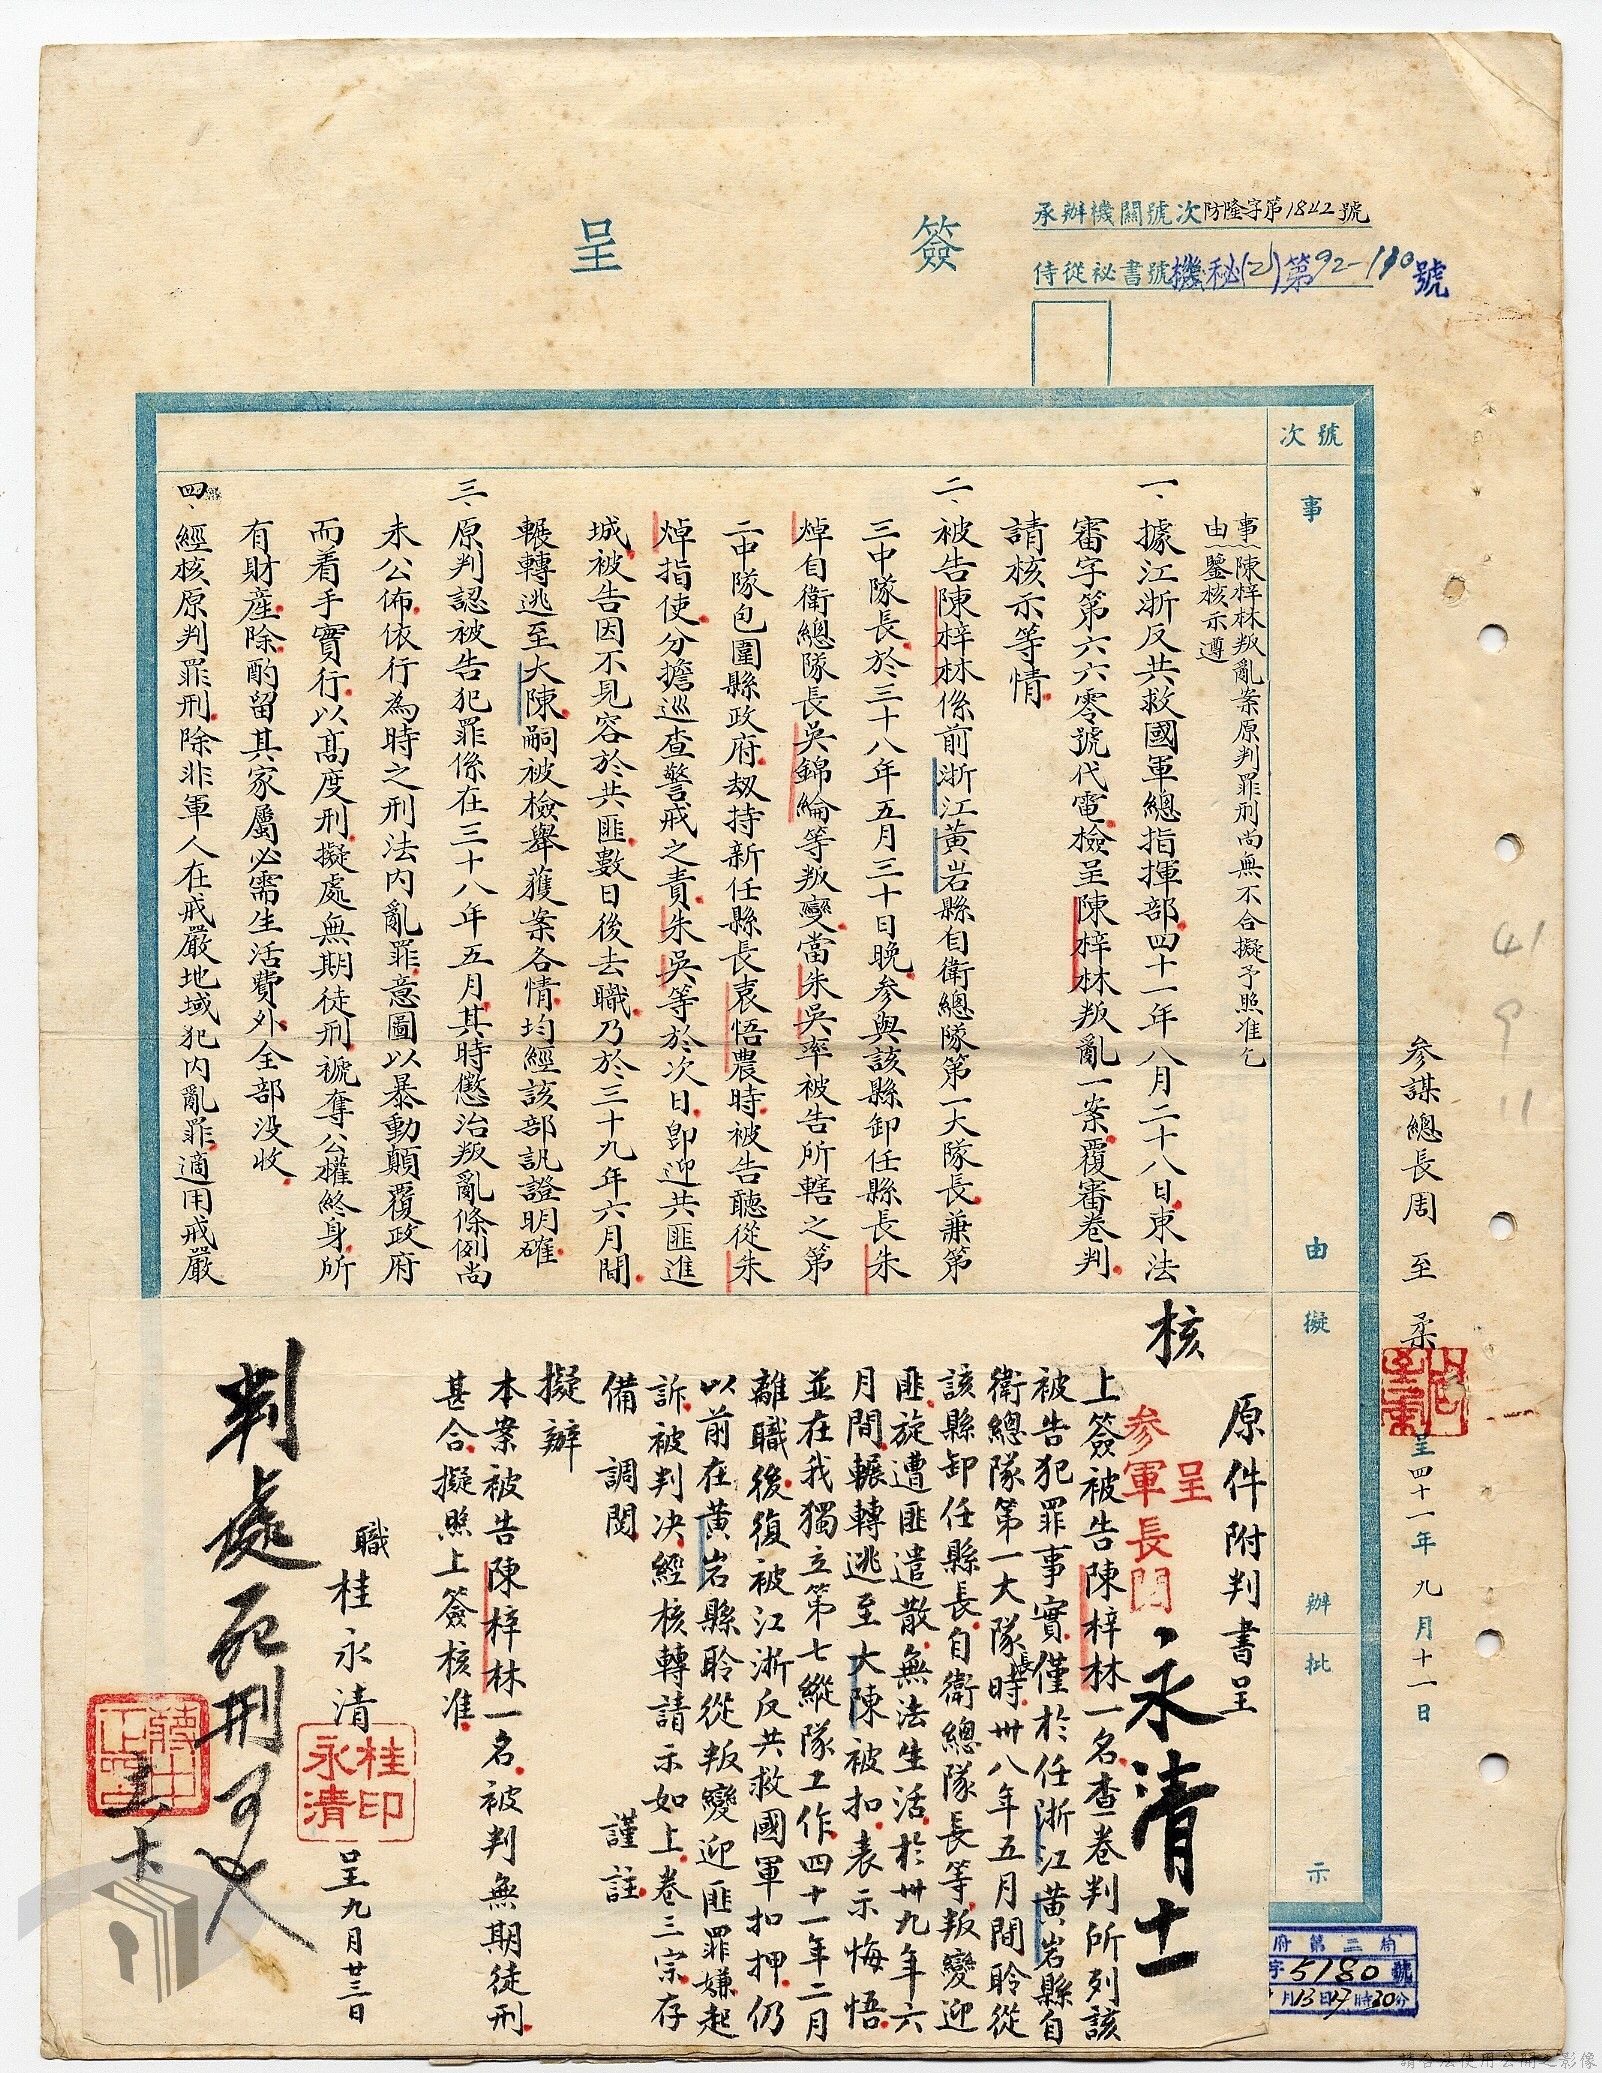 簽呈
承辦機關號次防隆字第1842號
侍從祕書號機秘(乙)第92-110號
號次
事由
擬辦
批示
參謀總長周至柔
呈四十一年九月十一日
41 9 11
事由
陳梓林叛亂案原判罪刑尚無不合擬予照准乞
鑒核示遵
一、據江浙反共救國軍總指揮部四十一年八月二十八日東法
審字第六六零號代電檢呈陳梓林叛亂一案覆審卷判
請核示等情
二、被告陳梓林係前浙江黃岩縣自衛總隊第一大隊長兼第
三中隊長於三十八年五月三十日晚參與該縣卸任縣長朱
焯自衛總隊長吳錦綸等叛變當朱吳率被告所轄之第
二中隊包圍縣政府劫持新任縣長袁悟農時被告聽從朱
焯指使分擔巡查警戒之責朱吳等於次日卽迎共匪進
城被告因不見容於共匪數日後去職乃於三十九年六月間
輾轉逃至大陳嗣被檢舉獲案各情均經該部訊證明確
三、原判認被告犯罪係在三十八年五月其時懲治叛亂條例尚
未公佈依行為時之刑法內亂罪意圖以暴動顛覆政府
而着手實行以高度刑擬處無期徒刑褫奪公權終身所
有財產除酌留其家屬必需生活費外全部沒收
四、經核原判罪刑除非軍人在戒嚴地域犯內亂罪適用戒嚴
核
原件附判書呈
呈
參軍長閱
永清 十一
上簽被告陳梓林一名查卷判所列該
被告犯罪事實僅於任浙江黃岩縣自
衛總隊第一大隊長時卅八年五月間聆從
該縣卸任縣長自衛總隊長等叛變迎
匪旋遭匪遣散無法生活於卅九年六
月間輾轉逃至大陳被扣表示悔悟
並在我獨立第七縱隊工作四十一年二月
離職後復被江浙反共救國軍扣押仍
以前在黃岩縣聆從叛變迎匪罪嫌起
訴被判決經核轉請示如上卷三宗存
備調閱 謹註
擬辦
本案被告陳梓林一名被判無期徒刑
甚合擬照上簽核准
職桂永清
桂永清印
呈九月廿三日
判處死刑可也
蔣中正印
府第二局
字5180號
月13日17時30分
請合法使用公開之影像